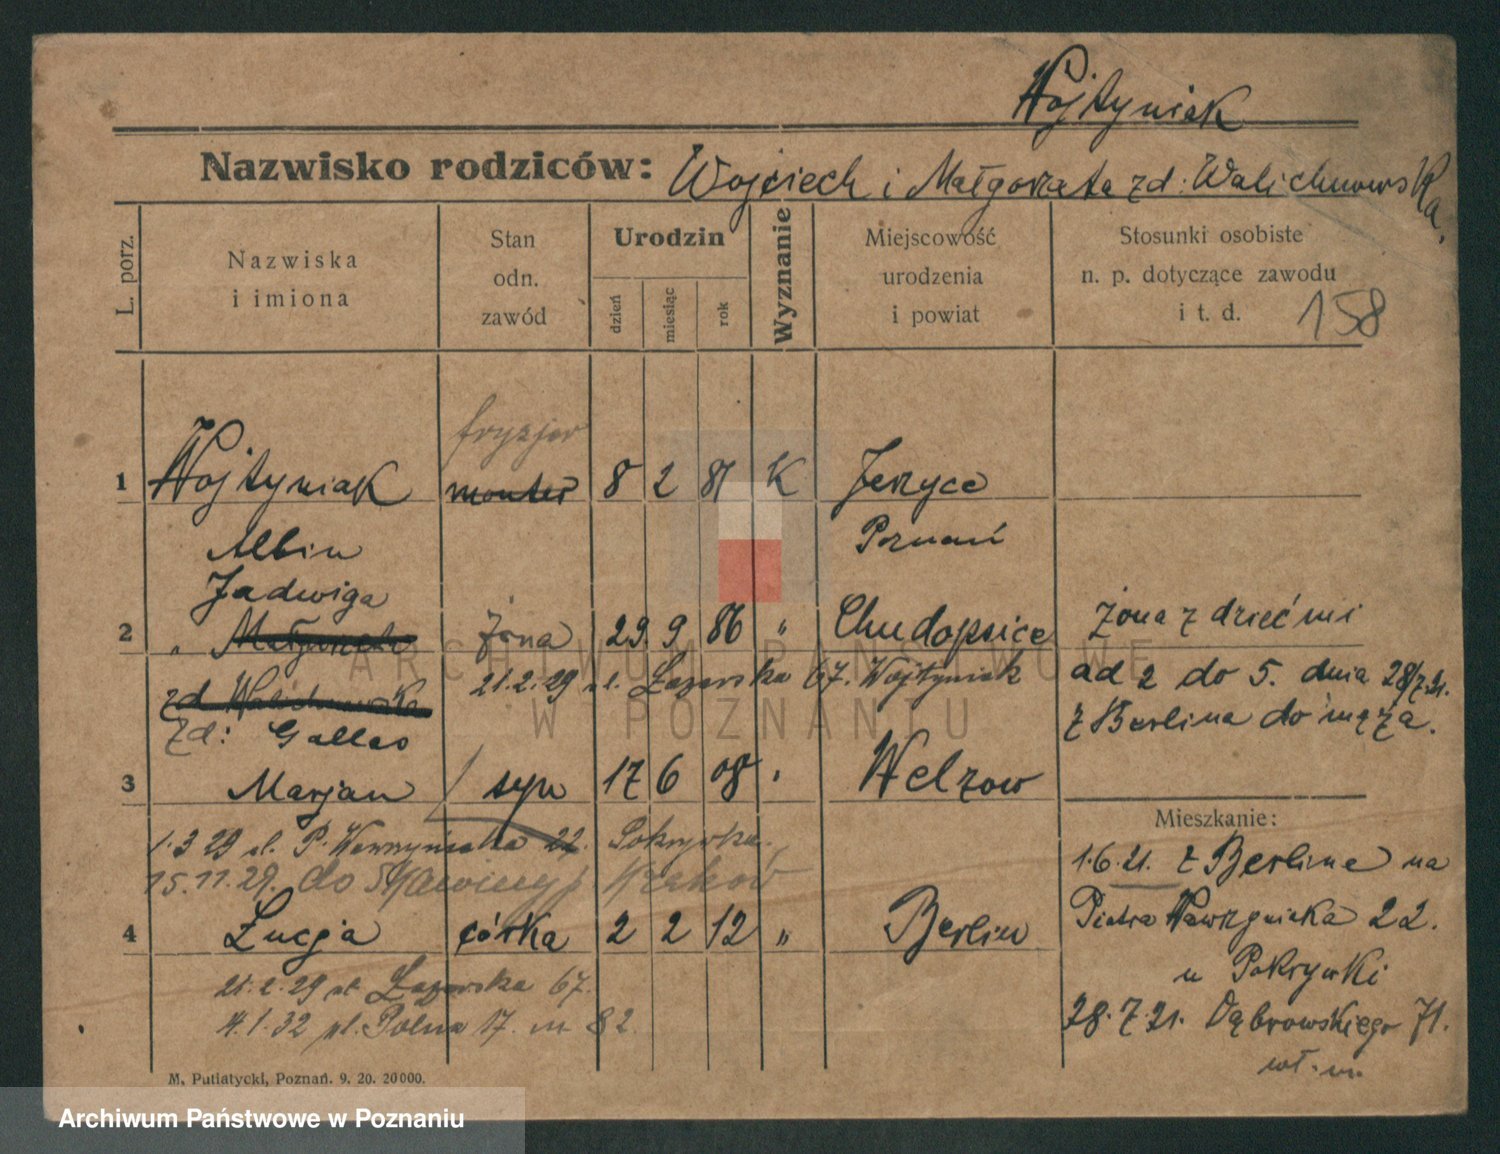 Wojtyniak
Nazwisko rodziców: Wojciech i Małgorzata zd: Walichnowska.
L. porz.
Nazwiska i imiona
Stan odn. zawód
Urodzin
dzień
miesiąc
rok
Wyznanie
Miejscowość urodzenia i powiat
Stosunki osobiste n. p. dotyczące zawodu i t. d.
158
fryzjer
1 Wojtyniak monter 8 2 81 K Jerzyce
Albin Poznań
Jadwiga
2 " Małgorzata żona 29. 9. 86 " Chudopsice żona z dziećmi
21.2.29 ul. Łazarska 67. Wojtyniak od 2 do 5. dnia 28/7.21.
zd Walichnowska z Berlina do męża.
zd: Gallas
3 Marjan syn 17 6 08 " Welzow
Mieszkanie:
1.3 29 ul. P. Wawrzyniaka 22. Pokrywka.
1.6.21. z Berlina na
15.11.29. do Kraków
Piotra Wawrzyniaka 22.
4 Łucja córka 2 2 12 " Berlin
u Pokrywki
21.2.29 ul. Łazarska 67.
28.7.21. Dąbrowskiego 71.
4.1.32 ul. Polna 17. m 82.
wł. m.
M. Putiatycki, Poznań. 9. 20. 20000.
ARCHIWUM PAŃSTWOWE
W POZNANIU
Archiwum Państwowe w Poznaniu